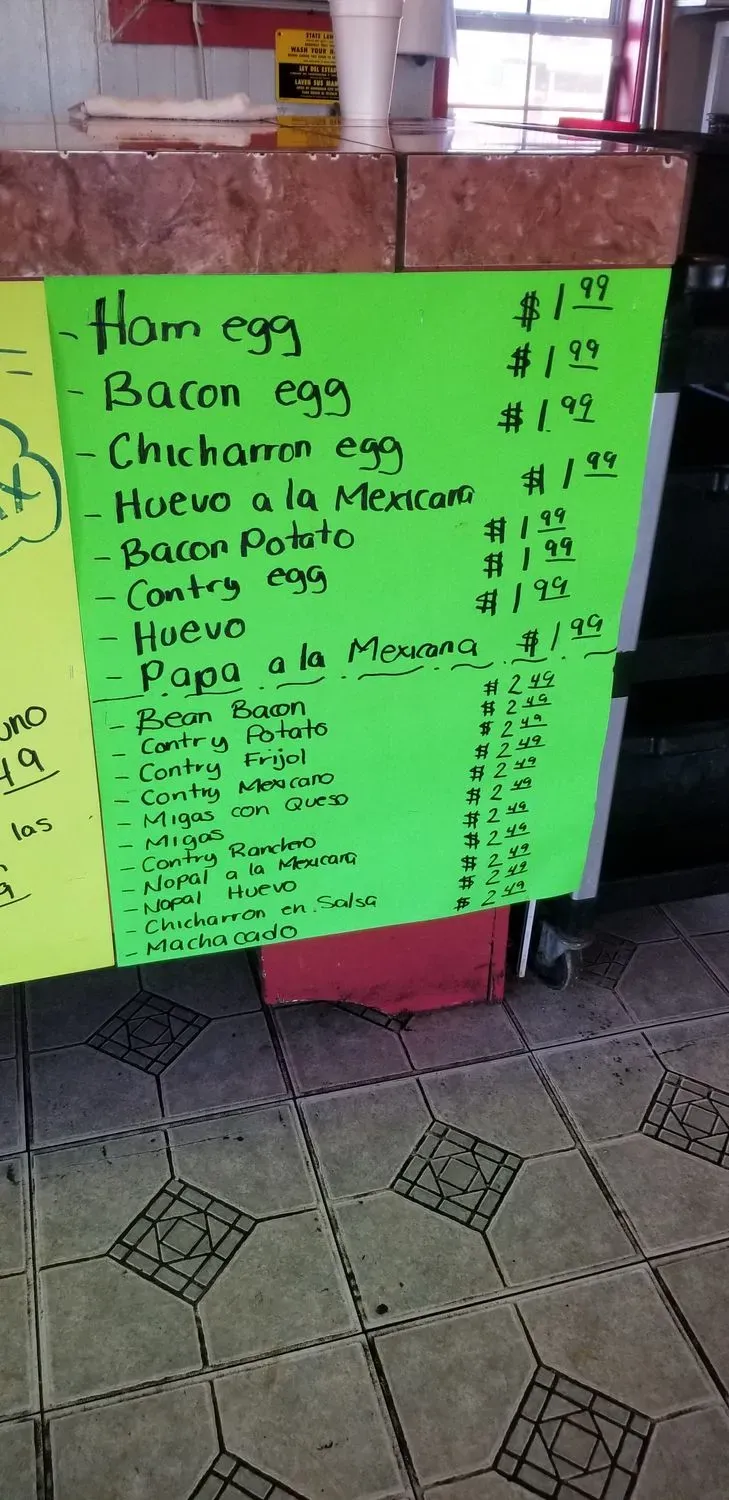 STATE LAW
WASH YOUR
LEY DEL ESTA
LAVER SUS MA
- Ham egg $1 99
- Bacon egg $1 99
- Chicharron egg $1.99
- Huevo a la Mexicana $1 99
- Bacon Potato $1 99
- Contry egg $1 99
- Huevo $1 99
- Papa a la Mexicana $1 99
- Bean Bacon $2 49
- Contry Potato $2 49
- Contry Frijol $2 49
- Contry Mexicano $2 49
- Migas con Queso $2 49
- Migas $2 49
- Contry Ranchero $2 49
- Nopal a la Mexicana $2 49
- Nopal Huevo $2 49
- Chicharron en Salsa $2 49
- Machacado $2 49
uno
49
las
9